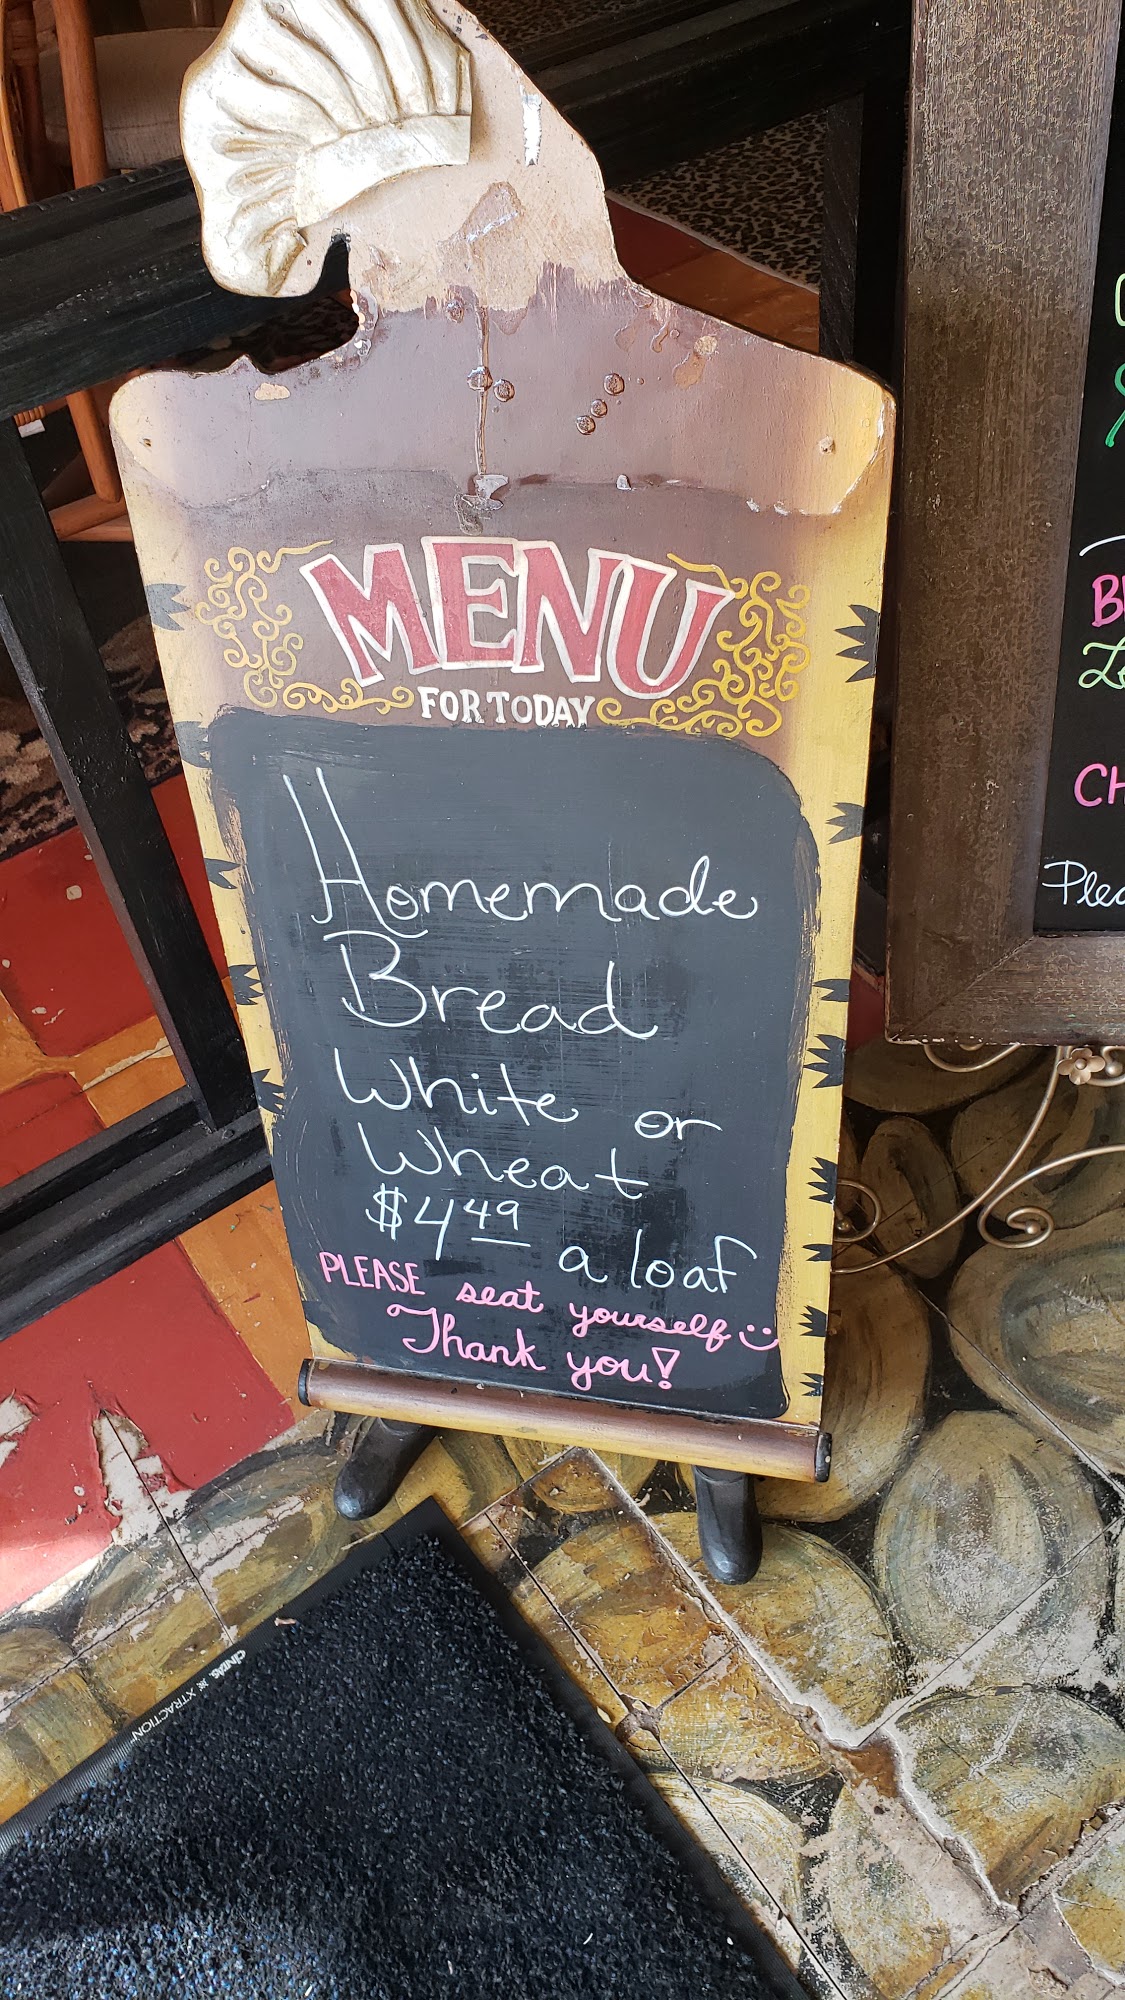 MENU
FOR TODAY
Homemade
Bread
White or
Wheat
$4 49 a loaf
PLEASE seat yourself
Thank you!
CINTAS XTRACTION